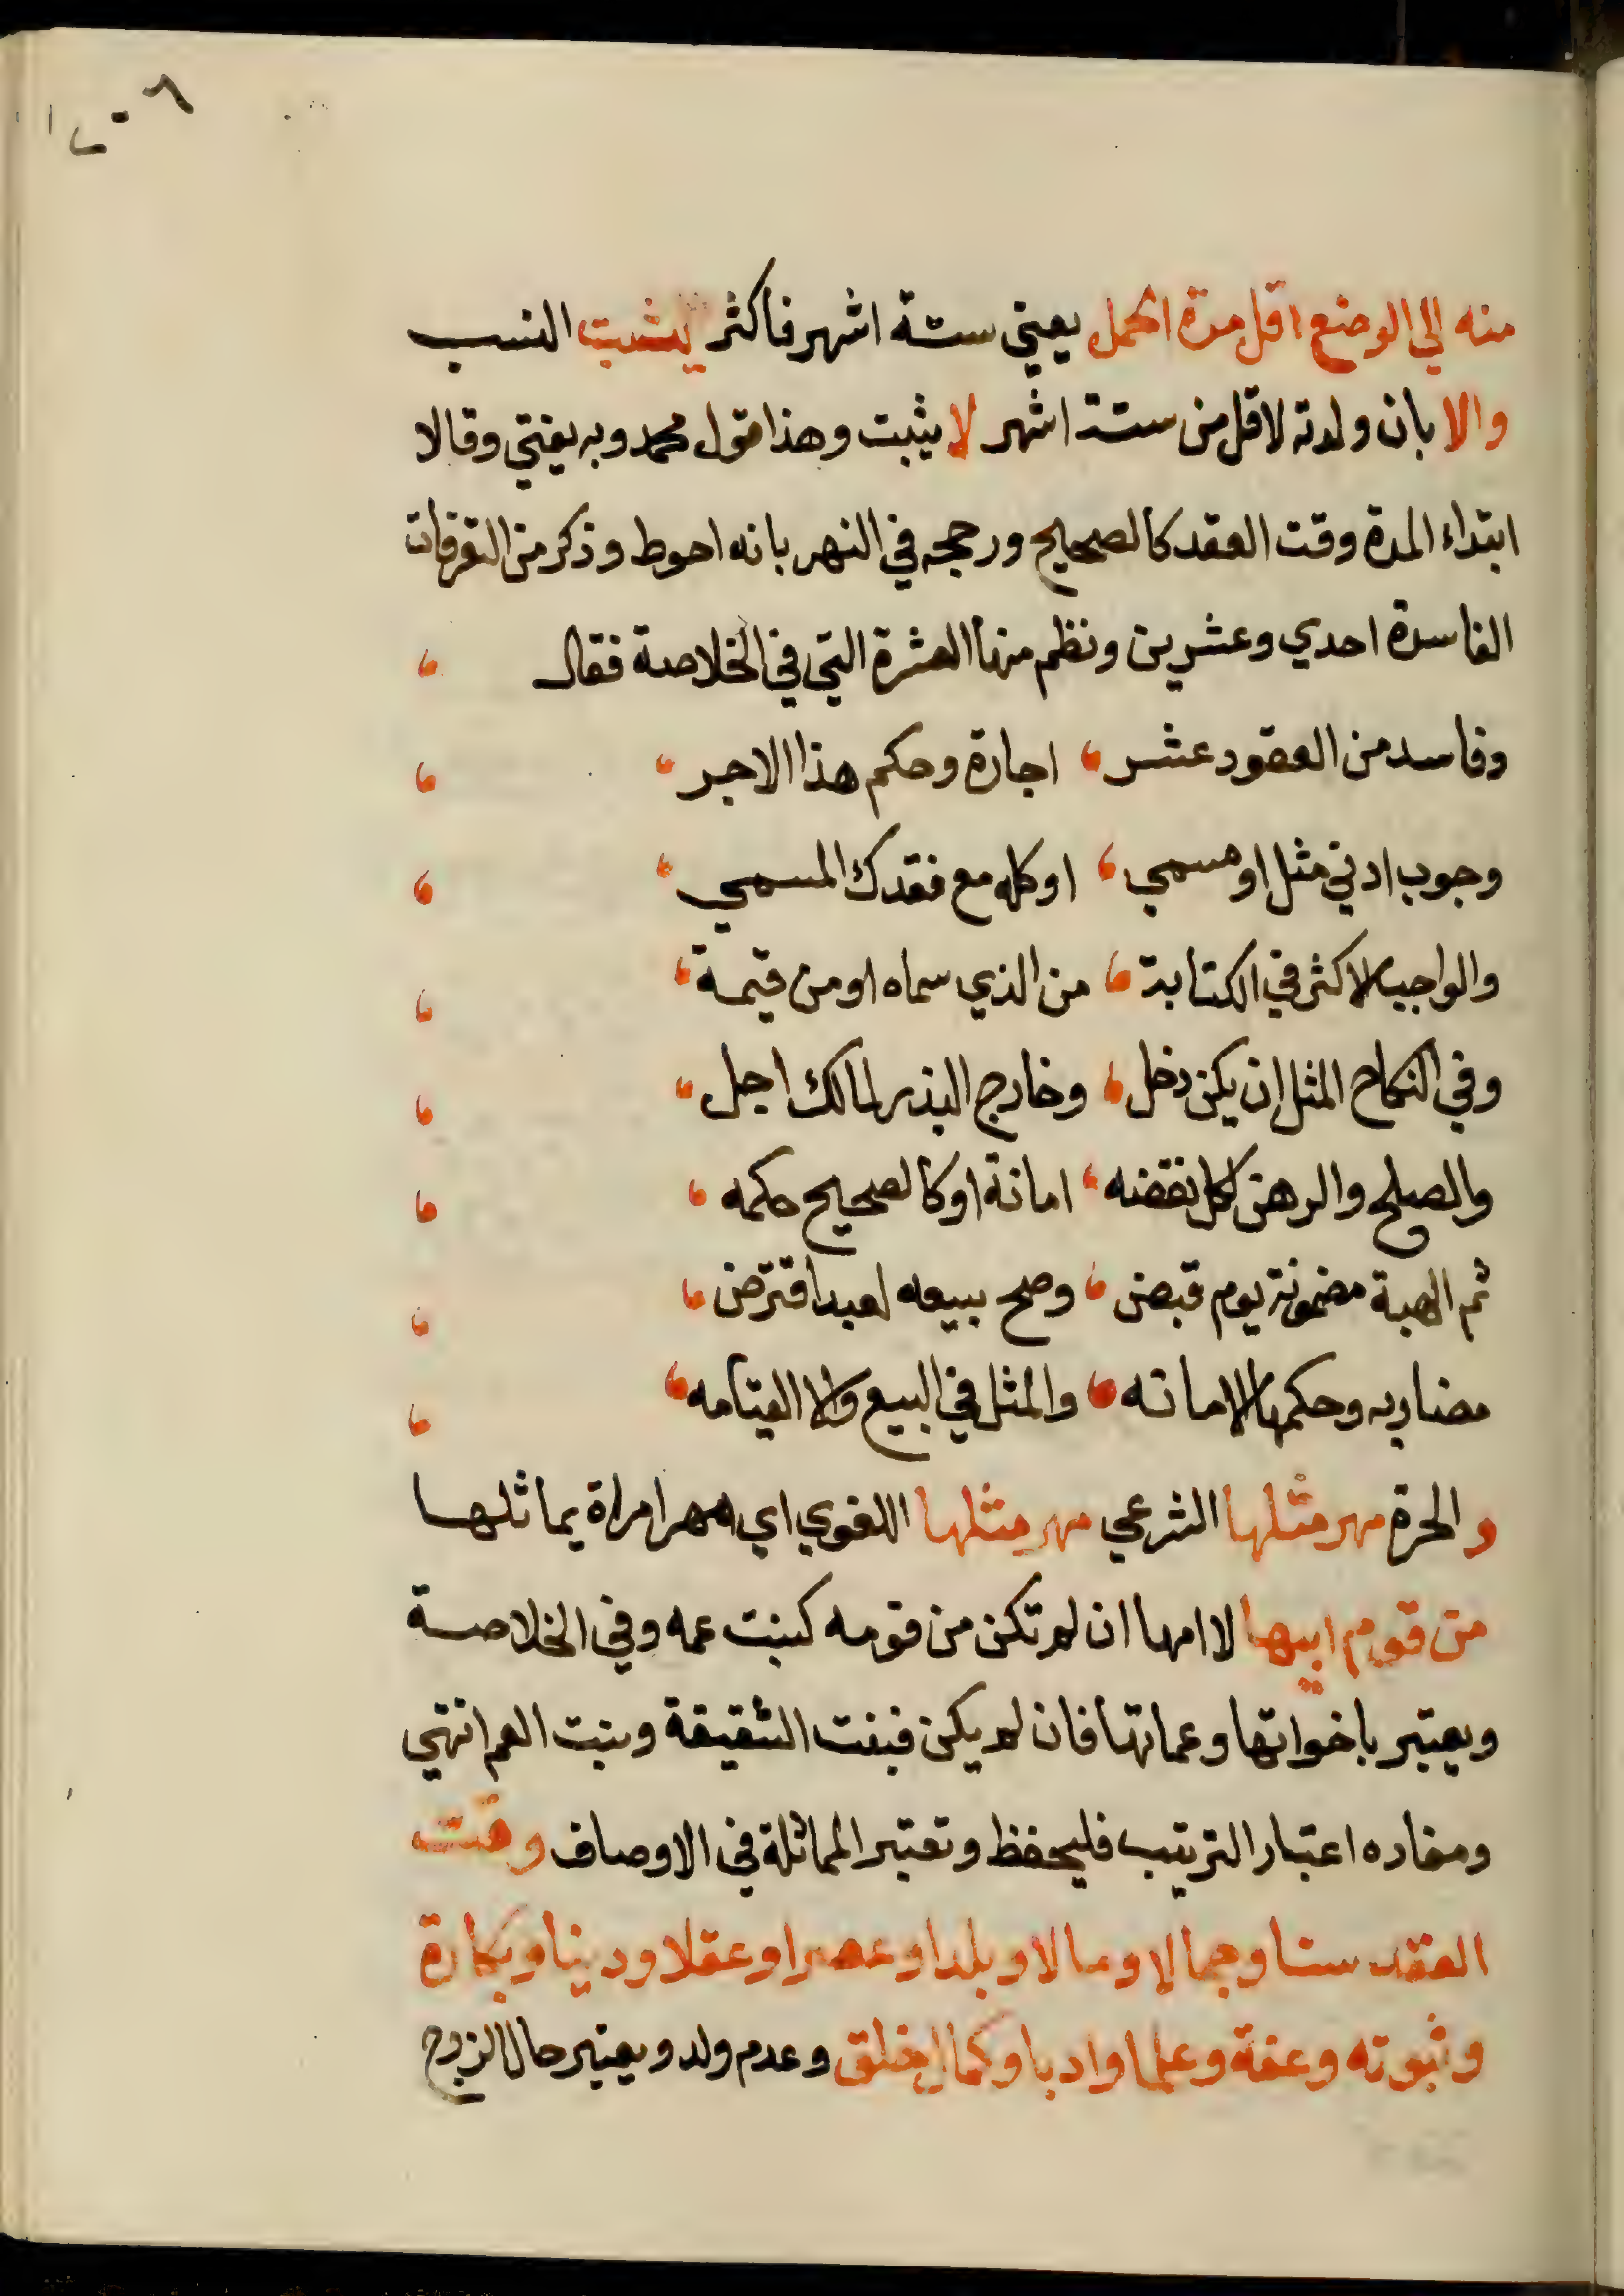 منه الي الوضع اقل مدة الحمل يعني ستة اشهر فاكثر يثبت النسب
والا بان ولدته لاقل من ستة اشهر لا يثبت وهذا قول محمد وبه يفتي وقالا
ابتداء المدة وقت العقد كالصحيح ورجحه في النهر بانه احوط وذكر من التصرفات
الفاسدة احدي وعشرين ونظم منها العشرة التي في الخلاصة فقال
وفاسد من العقود عشر ، اجارة وحكم هذا الاجر ،
وجوب ادني مثل او مسمي ، او كله مع فقدك المسمي ،
والواجب الاكثر في الكتابة ، من الذي سماه او من قيمة ،
وفي النكاح المثل ان يكن دخل ، وخارج البذر لمالك اجل ،
والصلح والرهن لكل نقضه ، امانة او كالصحيح حكمه ،
ثم الهبة مضمونة يوم قبض ، وصح بيعه لعبد اقترض ،
مضاربه وحكمها الامانه ، والمثل في البيع والا القيامه ،
و الحرة مهر مثلها الشرعي مهر مثلها اللغوي اي مهر امراة يماثلها
من قوم ابيها لا امها ان لم تكن من قومه كبنت عمه وفي الخلاصة
ويعتبر باخواتها وعماتها فان لم يكن فبنت الشقيقة وبنت العم انتهي
ومفاده اعتبار الترتيب فليحفظ وتعتبر المماثلة في الاوصاف وقت
العقد سنا وجمالا ومالا وبلدا وعصرا وعقلا ودينا وبكارة
وثيوته وعفة وعلما وادبا وكمال خلق وعدم ولد ويعتبر حال الزوج